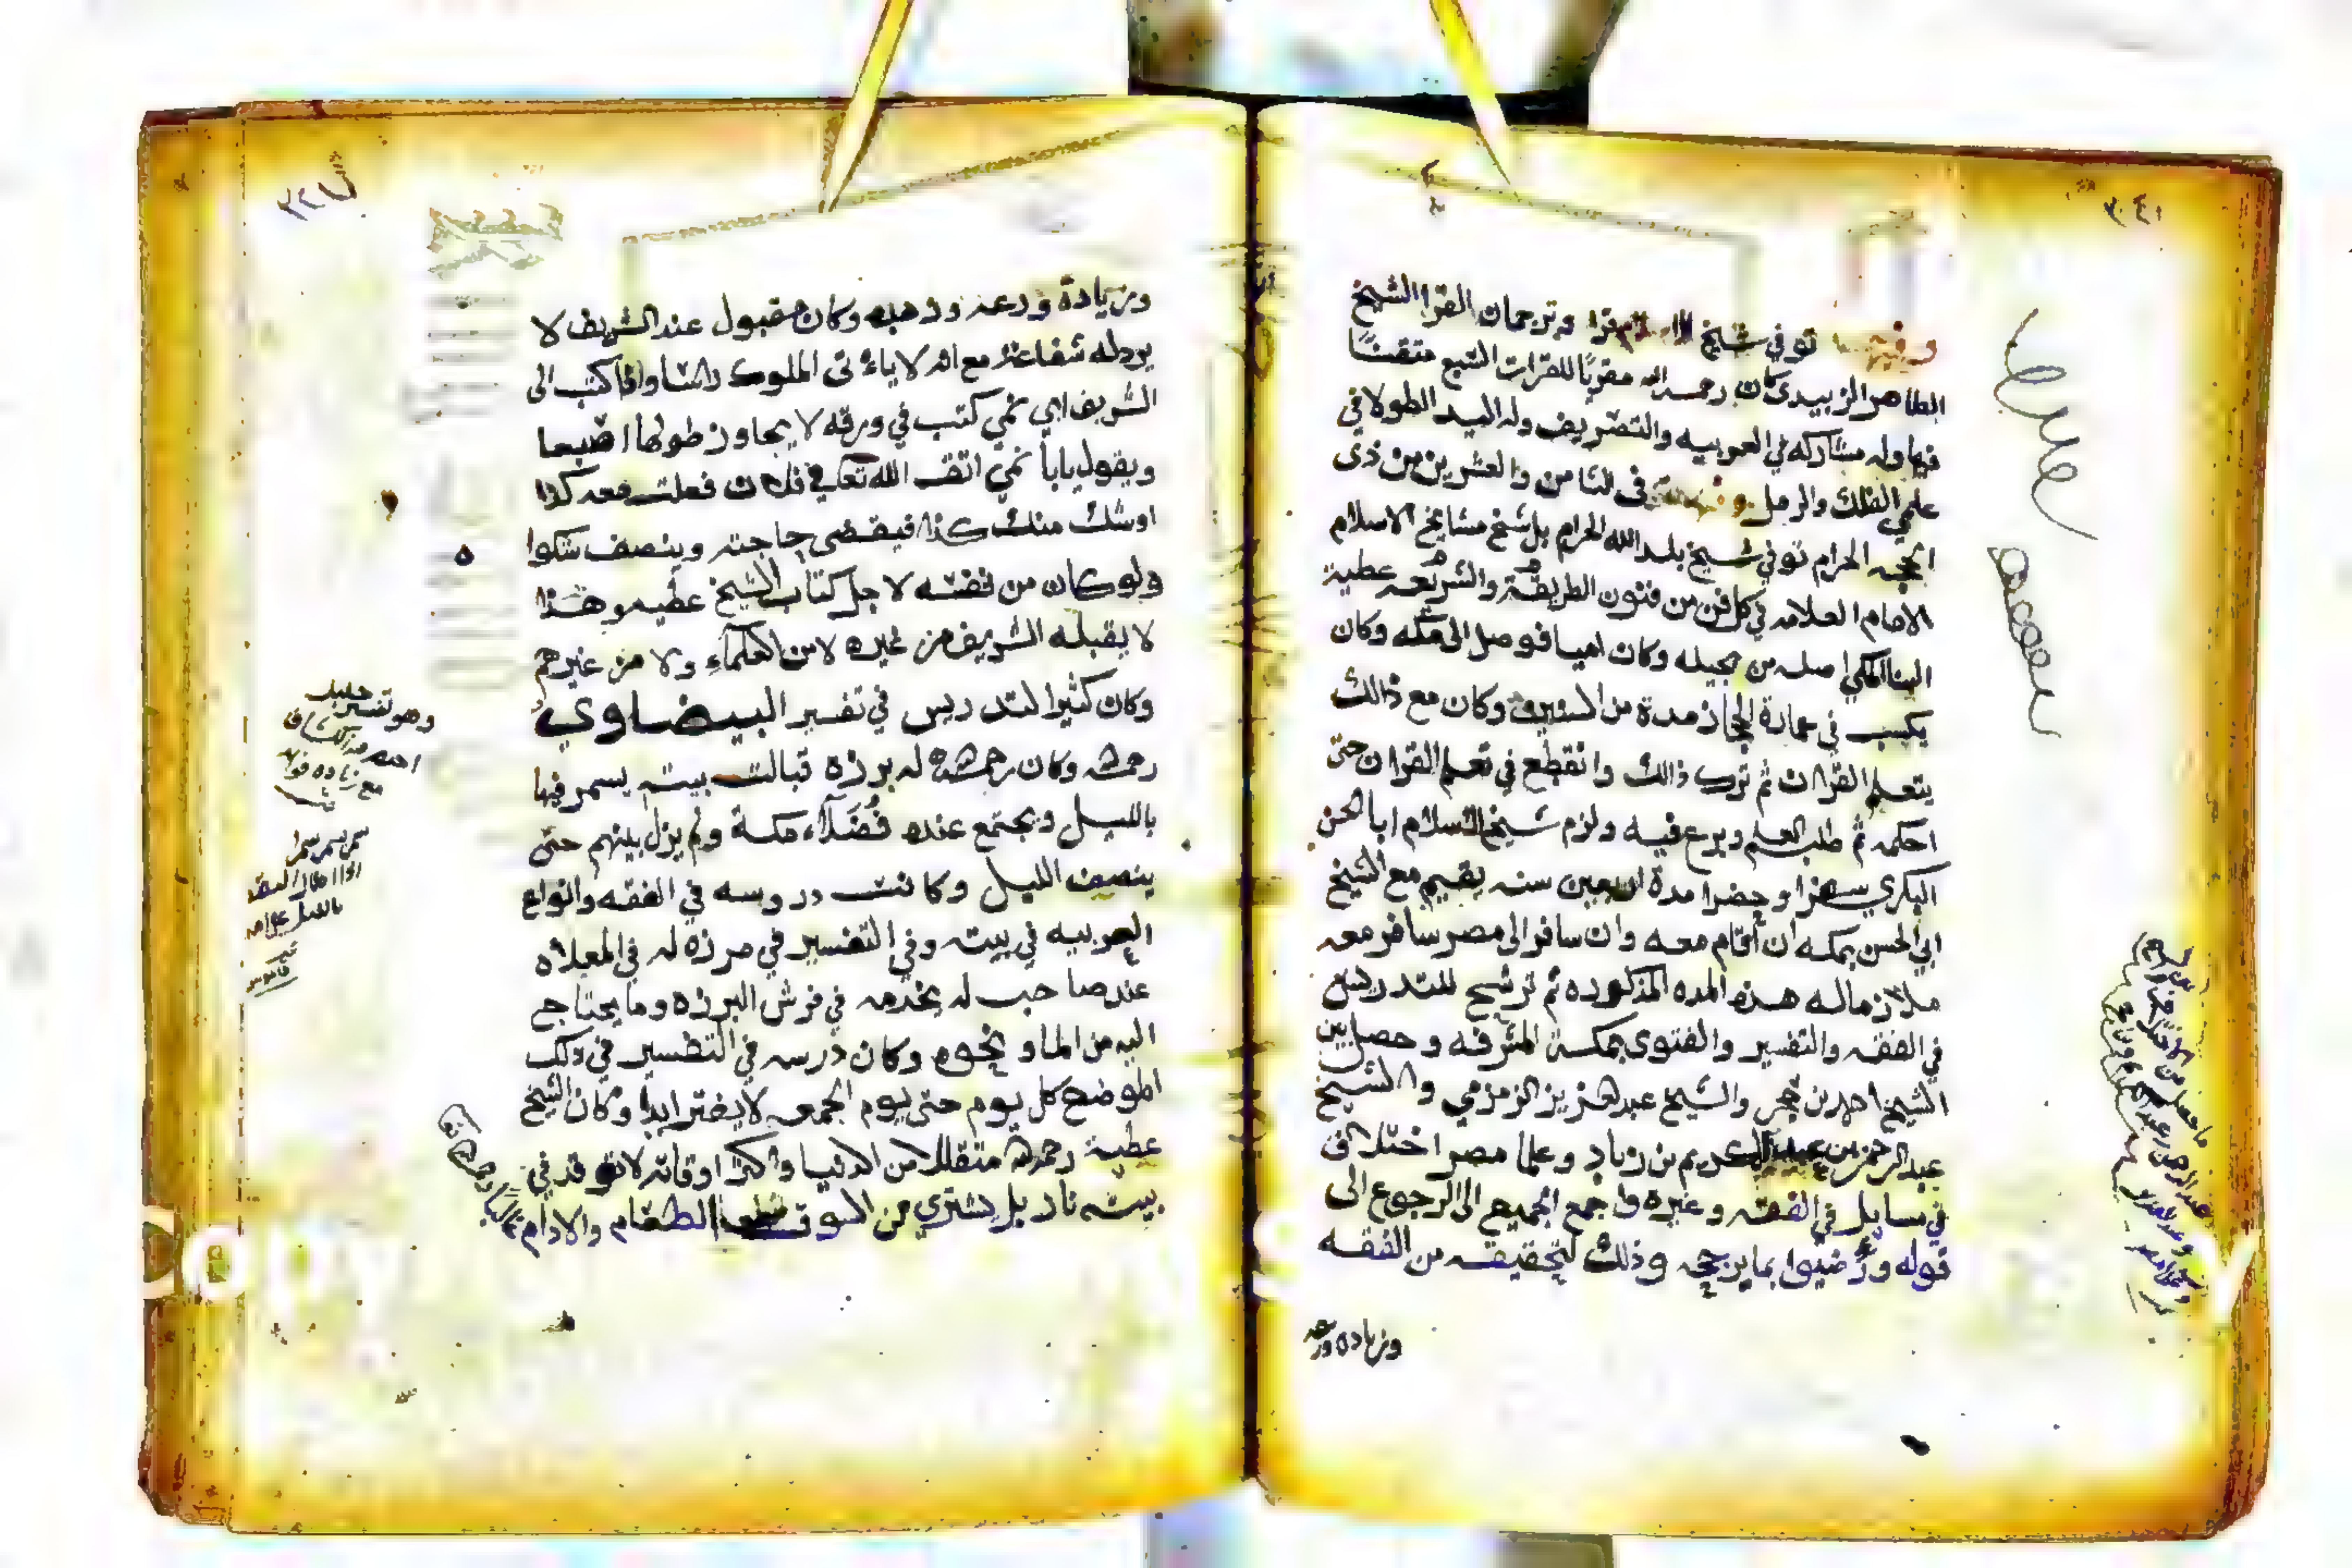 ٣٠٤١
وفيها توفي شيخ القرا وترجمان القرا الشيخ
الطاهر الزبيدي كان رحمه الله مقريًا للقرات السبع متقنًا
فيها وله مشاركه في العربيه والتصريف وله اليد الطولا في
علمي الفلك والرمل وفيها في الثامن والعشرين من ذى
الحجه الحرام توفي شيخ بلد الله الحرام بل شيخ مشايخ الاسلام
الامام العلامه في كل فن من فنون الطريقة والشريعه عطية
البنا المكي اصله من بجيله وكان اميا فوصل الى مكه وكان
يكسب في عمارة الحجاز مدة من السنين وكان مع ذالك
يتعلم القران ثم ترك ذالك وانقطع في تعلم القران حتى
احكمه ثم طلب العلم وبرع فيه ولزم شيخ الاسلام ابا الحسن
البكري سفرا وحضرا مدة اربعين سنه يقيم مع الشيخ
ابي الحسن بمكه ان أقام معه وان سافر الى مصر سافر معه
ملازما له هذه المده المذكوره ثم ترشح للتدريس
في الفقه والتفسير والفتوى بمكة المشرفه وحصل بين
الشيخ احمد بن حجر والشيخ عبد العزيز الزمزمي والشيخ
عبد الرحمن بن عبد الكريم بن زياد وعلما مصر اختلاف
في مسايل في الفقه وغيره واجمع الجميع الى الرجوع الى
قوله ورضيوا بما يرجحه وذلك لتحقيقه من الفقه
وزياده ورعه
وزيادة ورعه وزهده وكان مقبول عند الشريف لا
يرد له شفاعة مع انه لا ياءتى الملوك راسا واذا كتب الى
الشريف ابي نمي كتب في ورقه لا يجاوز طولها اصبعا
ويقول يابا نمي اتق الله تعالى في فلان فعلت معه كذا
اوشك منك كذا فيقضى حاجته وينصف شكوا
ولو كان من نفسه لاجل كتاب الشيخ عطيه وهذا
لا يقبله الشريف من غيره لا من العلماء ولا من غيرهم
وكان كثير التدريس في تفسير البيضاوي
رحمه الله وكان رحمه الله له برزه قبالت بيته يسمر فيها
بالليل ويجتمع عنده فُضَلآء مكة ولم يزل بينهم حتى
ينصف الليل وكانت دروسه في الفقه وانواع
العربيه في بيته وفي التفسير في مرزه له في المعلاه
عند صاحب له يخدمه في فرش البرزه وما يحتاج
اليه من الما ونحوه وكان درسه في التفسير في ذلك
الموضع كل يوم حتى يوم الجمعه لا يفتر ابدا وكان الشيخ
عطية رحمه الله متقللا من الدنيا واكثر اوقاته لا توقد في
بيته نار بل يشتري من السوق الطعام والادام
وهو تفسير جليل
اختصره من الكشاف
مع زياده فوائد